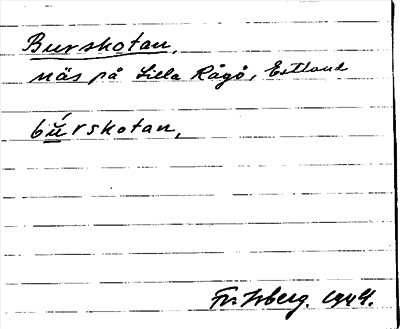 Burskotan,
näs på Lilla Rågö, Estland
bú̱rskotan,
1944.